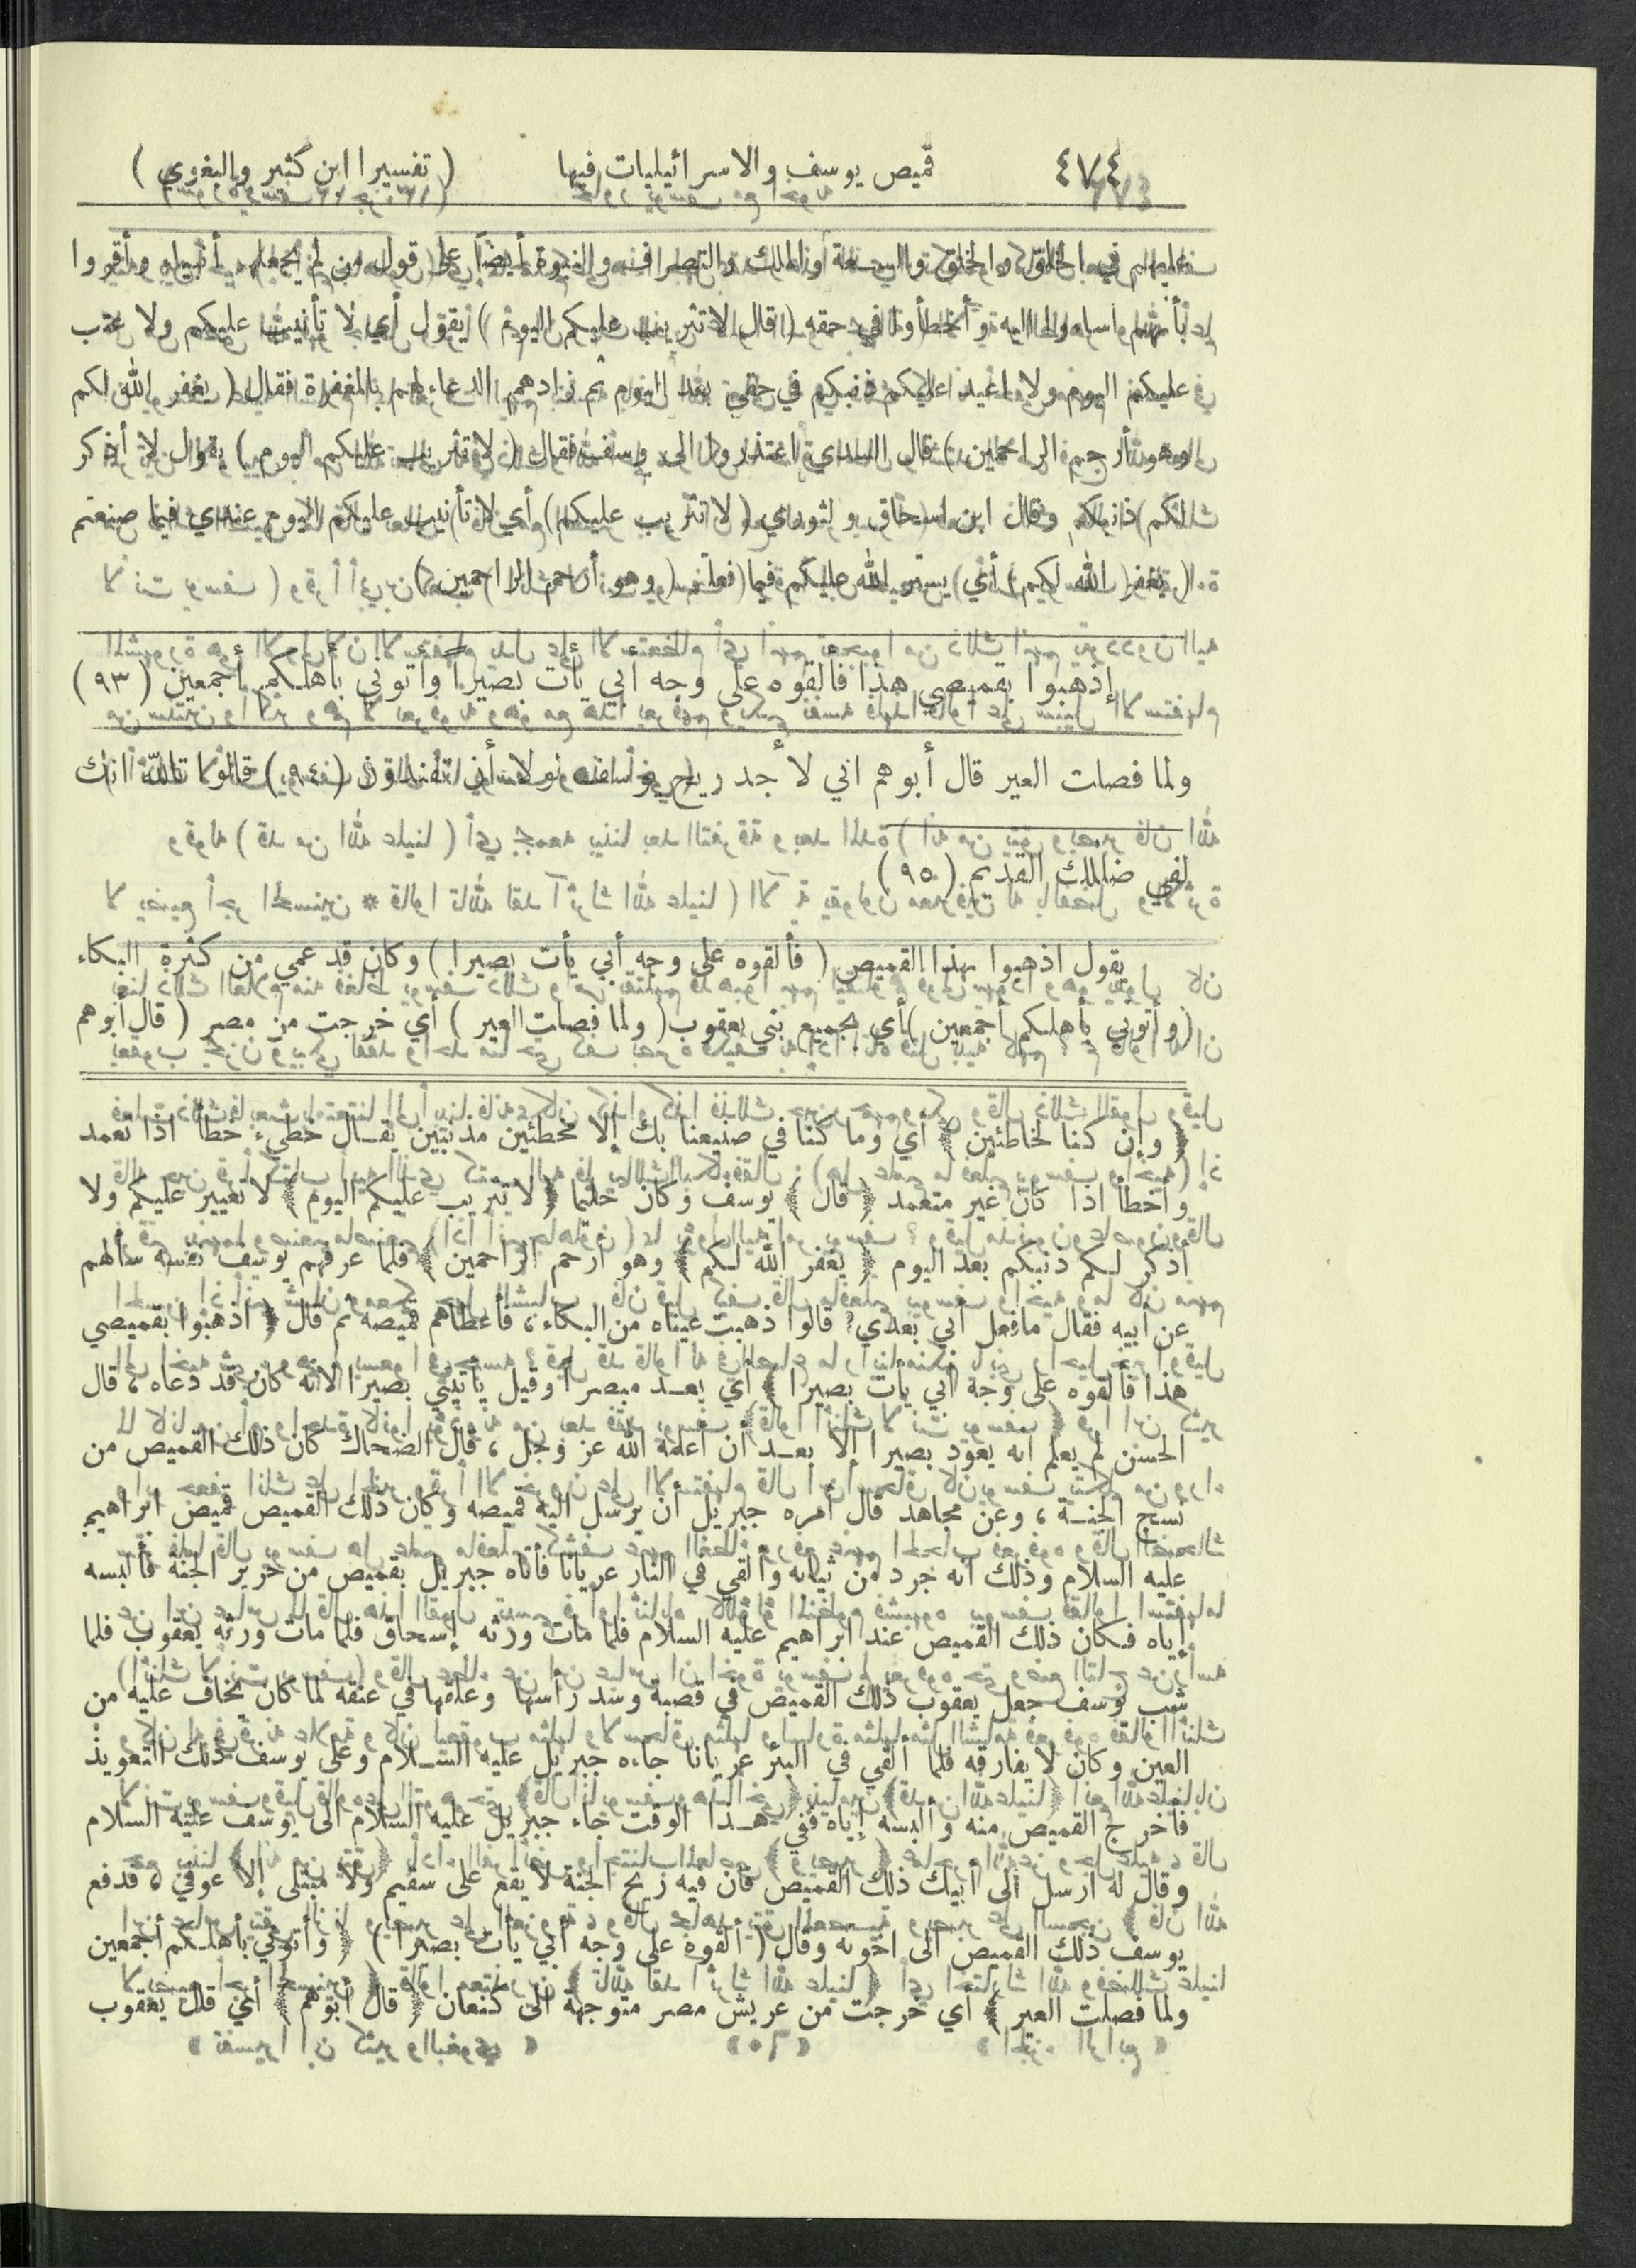 ٤٧٤ قميص يوسف والاسرائيليات فيها ( تفسيرا ابن كثير والبغوي )
عليهم في الخلق والخلق والسعة والملك والتصرف والنبوة أيضاً على قول من لم يجعلهم أنبياء وأقروا
بأنهم أساءوا اليه وأخطأوا في حقه ( قال لا تثريب عليكم اليوم ) يقول أي لا تأنيب عليكم ولا عتب
عليكم اليوم ولا أعيد عليكم ذنبكم في حقي بعد اليوم ثم زادهم الدعاء لهم بالمغفرة فقال ( يغفر الله لكم
وهو أرحم الراحمين ) قال السدي اعتذروا إلى يوسف فقال ( لا تثريب عليكم اليوم ) يقول لا أذكر
لكم ذنبكم وقال ابن اسحاق والثوري ( لا تثريب عليكم ) أي لا تأنيب عليكم اليوم عندي فيما صنعتم
( يغفر الله لكم ) أي يستر الله عليكم فيما فعلتم ( وهو أرحم الراحمين )
إذهبوا بقميصي هذا فألقوه على وجه أبي يأت بصيراً وأتوني بأهلكم أجمعين ( ٩٣ )
ولما فصلت العير قال أبوهم اني لأجد ريح يوسف لولا أن تفندون ( ٩٤ ) قالوا تالله انك
لفي ضلالك القديم ( ٩٥ )
يقول اذهبوا بهذا القميص ( فألقوه على وجه أبي يأت بصيرا ) وكان قد عمي من كثرة البكاء
( وأتوني بأهلكم أجمعين ) أي بجميع بني يعقوب ( ولما فصلت العير ) أي خرجت من مصر ( قال أبوهم
﴿ وإن كنا لخاطئين ﴾ أي وما كنا في صنيعنا بك إلا مخطئين مذنبين يقال خطيء خطأ اذا تعمد
وأخطأ اذا كان غير متعمد ﴿ قال ﴾ يوسف وكان حليما ﴿ لا تثريب عليكم اليوم ﴾ لا تعيير عليكم ولا
أذكر لكم ذنبكم بعد اليوم ﴿ يغفر الله لكم ﴾ وهو أرحم الراحمين ﴾ فلما عرفهم يوسف نفسه سألهم
عن أبيه فقال ما فعل أبي بعدي؟ قالوا ذهبت عيناه من البكاء، فأعطاهم قميصه ثم قال ﴿ اذهبوا بقميصي
هذا فألقوه على وجه أبي يأت بصيرا ﴾ أي يعد مبصرا وقيل يأتيني بصيرا لانه كان قد دعاه، قال
الحسن لم يعلم أنه يعود بصيرا إلا بعد أن أعلمه الله عز وجل، قال الضحاك كان ذلك القميص من
نسج الجنة، وعن مجاهد قال أمره جبريل أن يرسل اليه قميصه وكان ذلك القميص قميص ابراهيم
عليه السلام وذلك أنه جرد من ثيابه وألقي في النار عريانا فأتاه جبريل بقميص من حرير الجنة فألبسه
إياه فكان ذلك القميص عند ابراهيم عليه السلام فلما مات ورثه إسحاق فلما مات ورثه يعقوب فلما
شب يوسف جعل يعقوب ذلك القميص في قصبة وسد رأسها وعلقها في عنقه لما كان يخاف عليه من
العين وكان لا يفارقه فلما ألقي في البئر عريانا جاءه جبريل عليه السلام وعلى يوسف ذلك التعويذ
فأخرج القميص منه وألبسه إياه ففي هذا الوقت جاء جبريل عليه السلام الى يوسف عليه السلام
وقال له أرسل الى أبيك ذلك القميص فان فيه ريح الجنة لا يقع على سقيم ولا مبتلى إلا عوفي، فدفع
يوسف ذلك القميص الى اخوته وقال ( ألقوه على وجه أبي يأت بصيرا ) ﴿ وأتوني بأهلكم أجمعين
ولما فصلت العير ﴾ أي خرجت من عريش مصر متوجهة الى كنعان ﴿ قال أبوهم ﴾ أي قال يعقوب